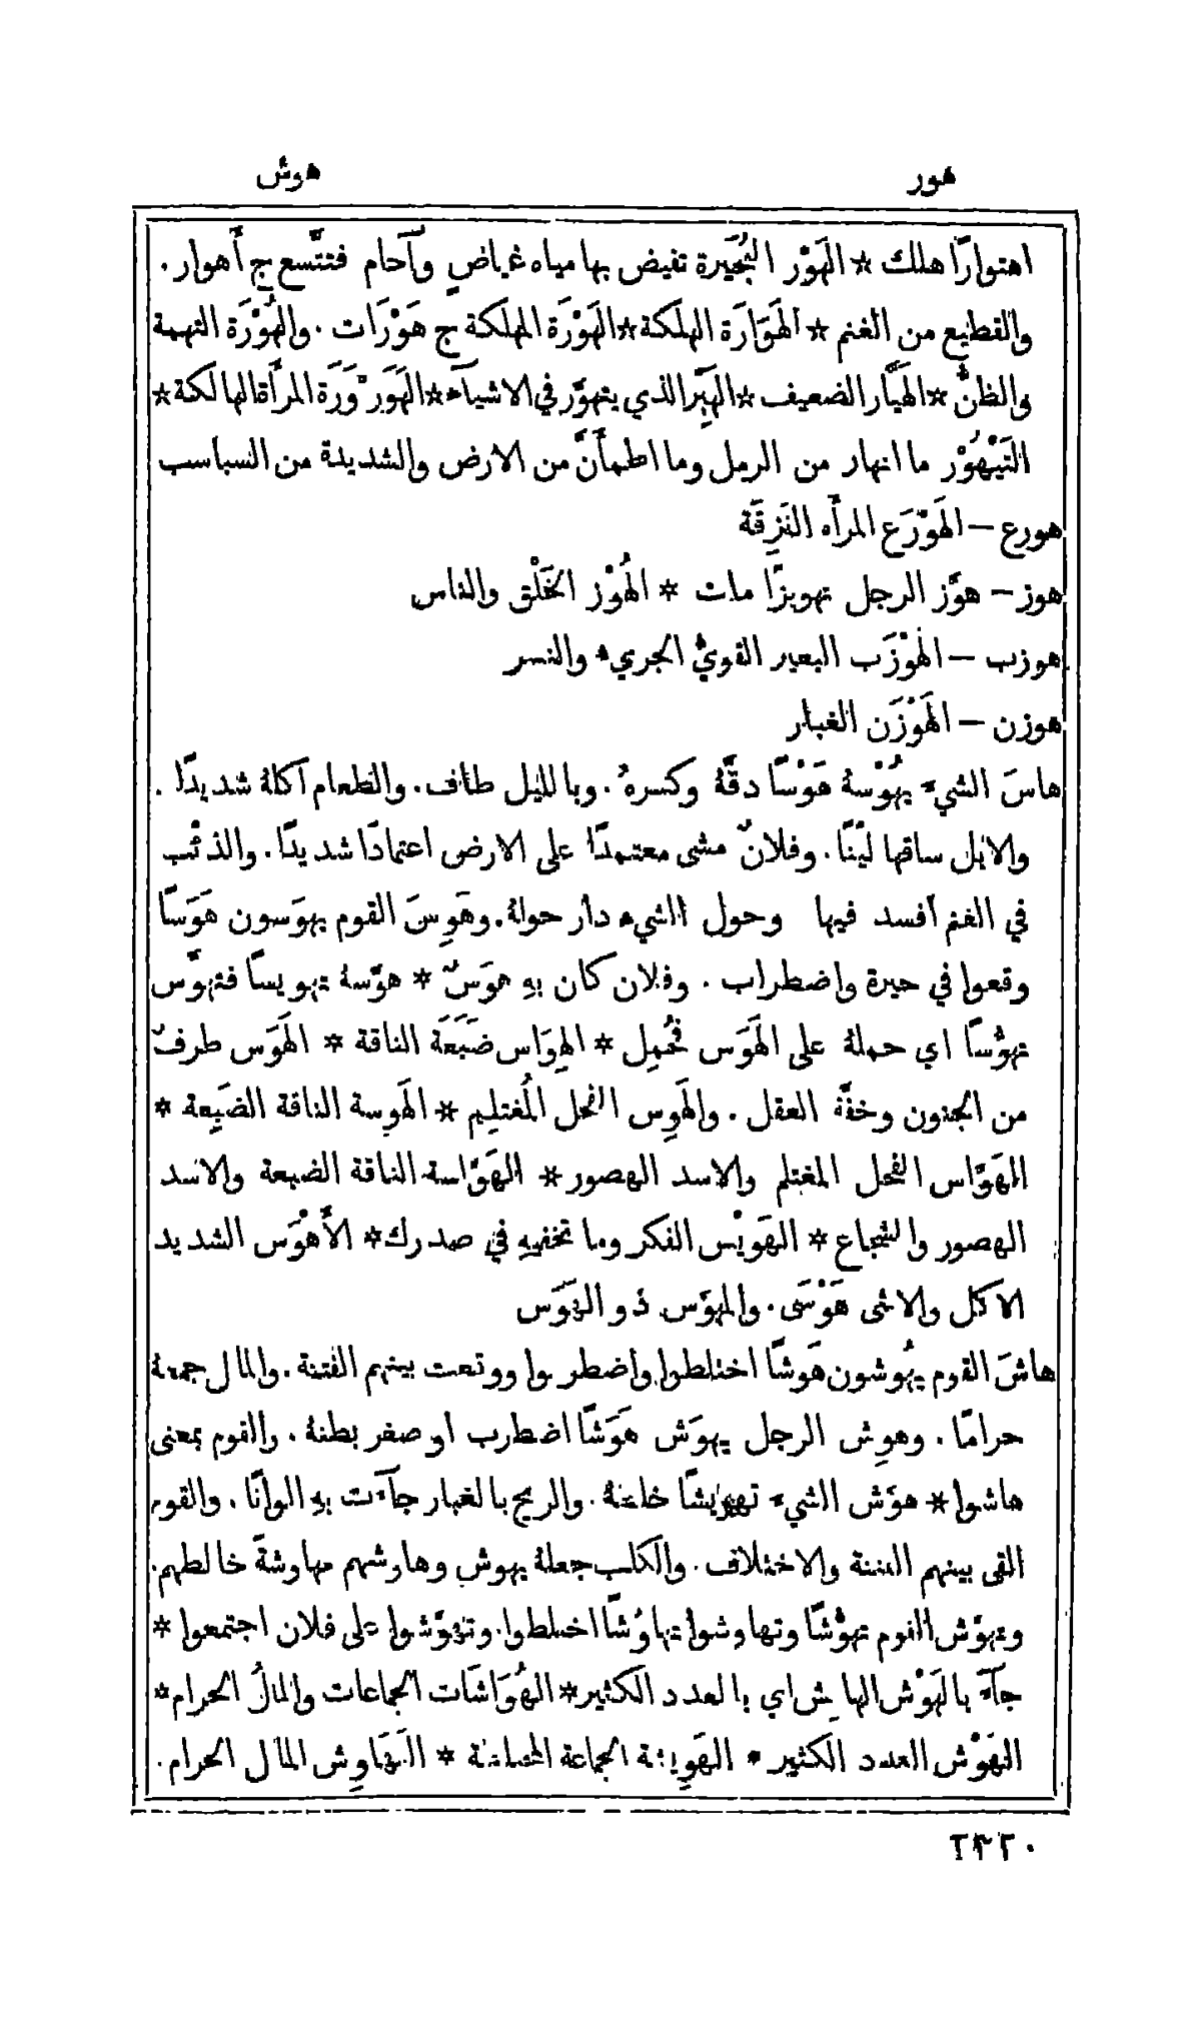 هور
هوش
اهتوارًا هلك * الهَوْر البُحَيرة تفيض بها مياه غياض وآجام فتتَّسع ج أَهوار .
والقطيع من الغنم * الهَوَارَة الهلكة * الهَوْرَة المهلكة ج هَوْرَات . والهُوْرَة التهمة
والظنُّ * الهَيَّار الضعيف * الهَيِّر الذي يتهوَّر في الاشيآء * الهَوَرْوَرَة المرأَة الهالكة *
التَيْهُوْر ما انهار من الرمل وما اطمأَنَّ من الارض والشديدة من السباسب
هورع – الهَوْرَع المرأَه النَزِقَة
هوز – هوَّز الرجل تهويزًا مات * الهُوْز الخَلْق والناس
هوزب – الهَوْزَب البعير القويُّ الجريء والنسر
هوزن – الهَوْزَن الغبار
هاسَ الشيءَ يهُوْسهُ هَوْسًا دقَّهُ وكسرهُ . وبالليل طاف . والطعام اكلهُ شديدًا .
والابل ساقها ليِّنًا . وفلانٌ مشى معتمدًا على الارض اعتمادًا شديدًا . والذئب
في الغنم افسد فيها وحول الشيء دار حولهُ . وهَوِسَ القوم يهوَسون هَوَسًا
وقعوا في حيرة واضطراب . وفلان كان بهِ هوَسٌ * هوَّسهُ تهويسًا فتهوَّس
تهوُّسًا اي حملهُ على الهَوَس فحُمِل * الهِوَاس ضَبَعَة الناقة * الهَوَس طرفٌ
من الجنون وخفَّة العقل . والهَوِس الفحل المُغتلِم * الهَوِسة الناقة الضَبِعة *
الهَوَّاس الفحل المغتلم والاسد الهصور * الهَوَّاسة الناقة الضبعة والاسد
الهصور والشجاع * الهَوِيْس الفكر وما تخفيهِ في صدرك * الأَهْوَس الشديد
الاكل والانثى هَوْسَى . والمهوَّس ذو الهَوَس
هاشَ القوم يهُوشون هَوشًا اختلطوا واضطربوا ووقعت بينهم الفتنة . والمال جمعهُ
حرامًا . وهوِش الرجل يهوَش هَوَشًا اضطرب او صغر بطنهُ . والقوم بمعنى
هاشوا * هوَّش الشيءَ تهويشًا خلطهُ . والريح بالغبار جآءت بهِ الوانًا . والقوم
القى بينهم الفتنة والاختلاف . والكلب جعلهُ يهوش وهاوشهم مهاوشةً خالطهم .
وتهوَّش القوم تهوُّشًا وتهاوشوا تهاوُشًا اختلطوا . وتهوَّشوا على فلان اجتمعوا *
جآءَ بالهَوْش الهايش اي بالعدد الكثير * الهُوَاشَات الجماعات والمالُ الحرام *
الهَوْش العدد الكثير * الهَوِيشة الجماعة المختلطة * التَهَاوِش المال الحرام .